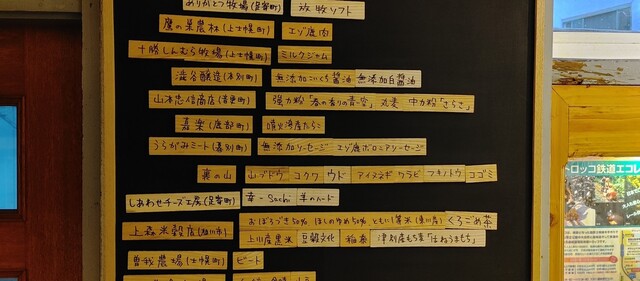 ありがとう牧場(足寄町) 放牧ソフト
鷹の巣農林(上士幌町) エゾ鹿肉
十勝しんむら牧場(上士幌町) ミルクジャム
渋谷醸造(本別町) 無添加こいくち醤油 無添加白醤油
山本忠信商店(音更町) 強力粉「春の香りの青空」 丸麦 中力粉「きらきら」
嘉楽(鹿部町) 噴火湾産たらこ
うらがみミート(幕別町) 無添加ソーセージ エゾ鹿ボロニアソーセージ
裏の山 山ブドウ コクワ ウド アイヌネギ ワラビ フキノトウ コゴミ
しあわせチーズ工房(足寄町) 幸-Sachi
おぼろづき50% ほしのゆめ50% ともに1等米(旭川産) くろごめ茶
上森米穀店(旭川市) 上川産黒米 豆穀文化 稲泰 津別産もち麦「はねうまもち」
曽我農場(士幌町) ビート